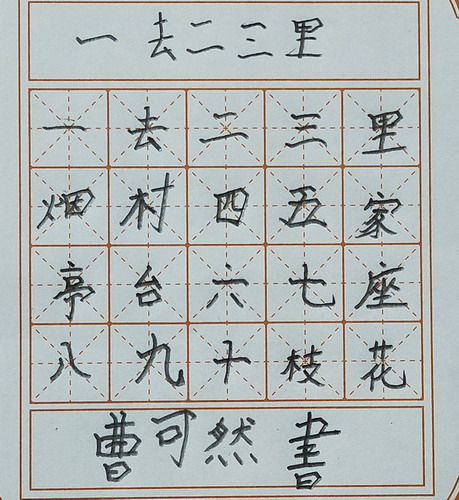 一去二三里
一去二三里
烟村四五家
亭台六七座
八九十枝花
曹可然 書